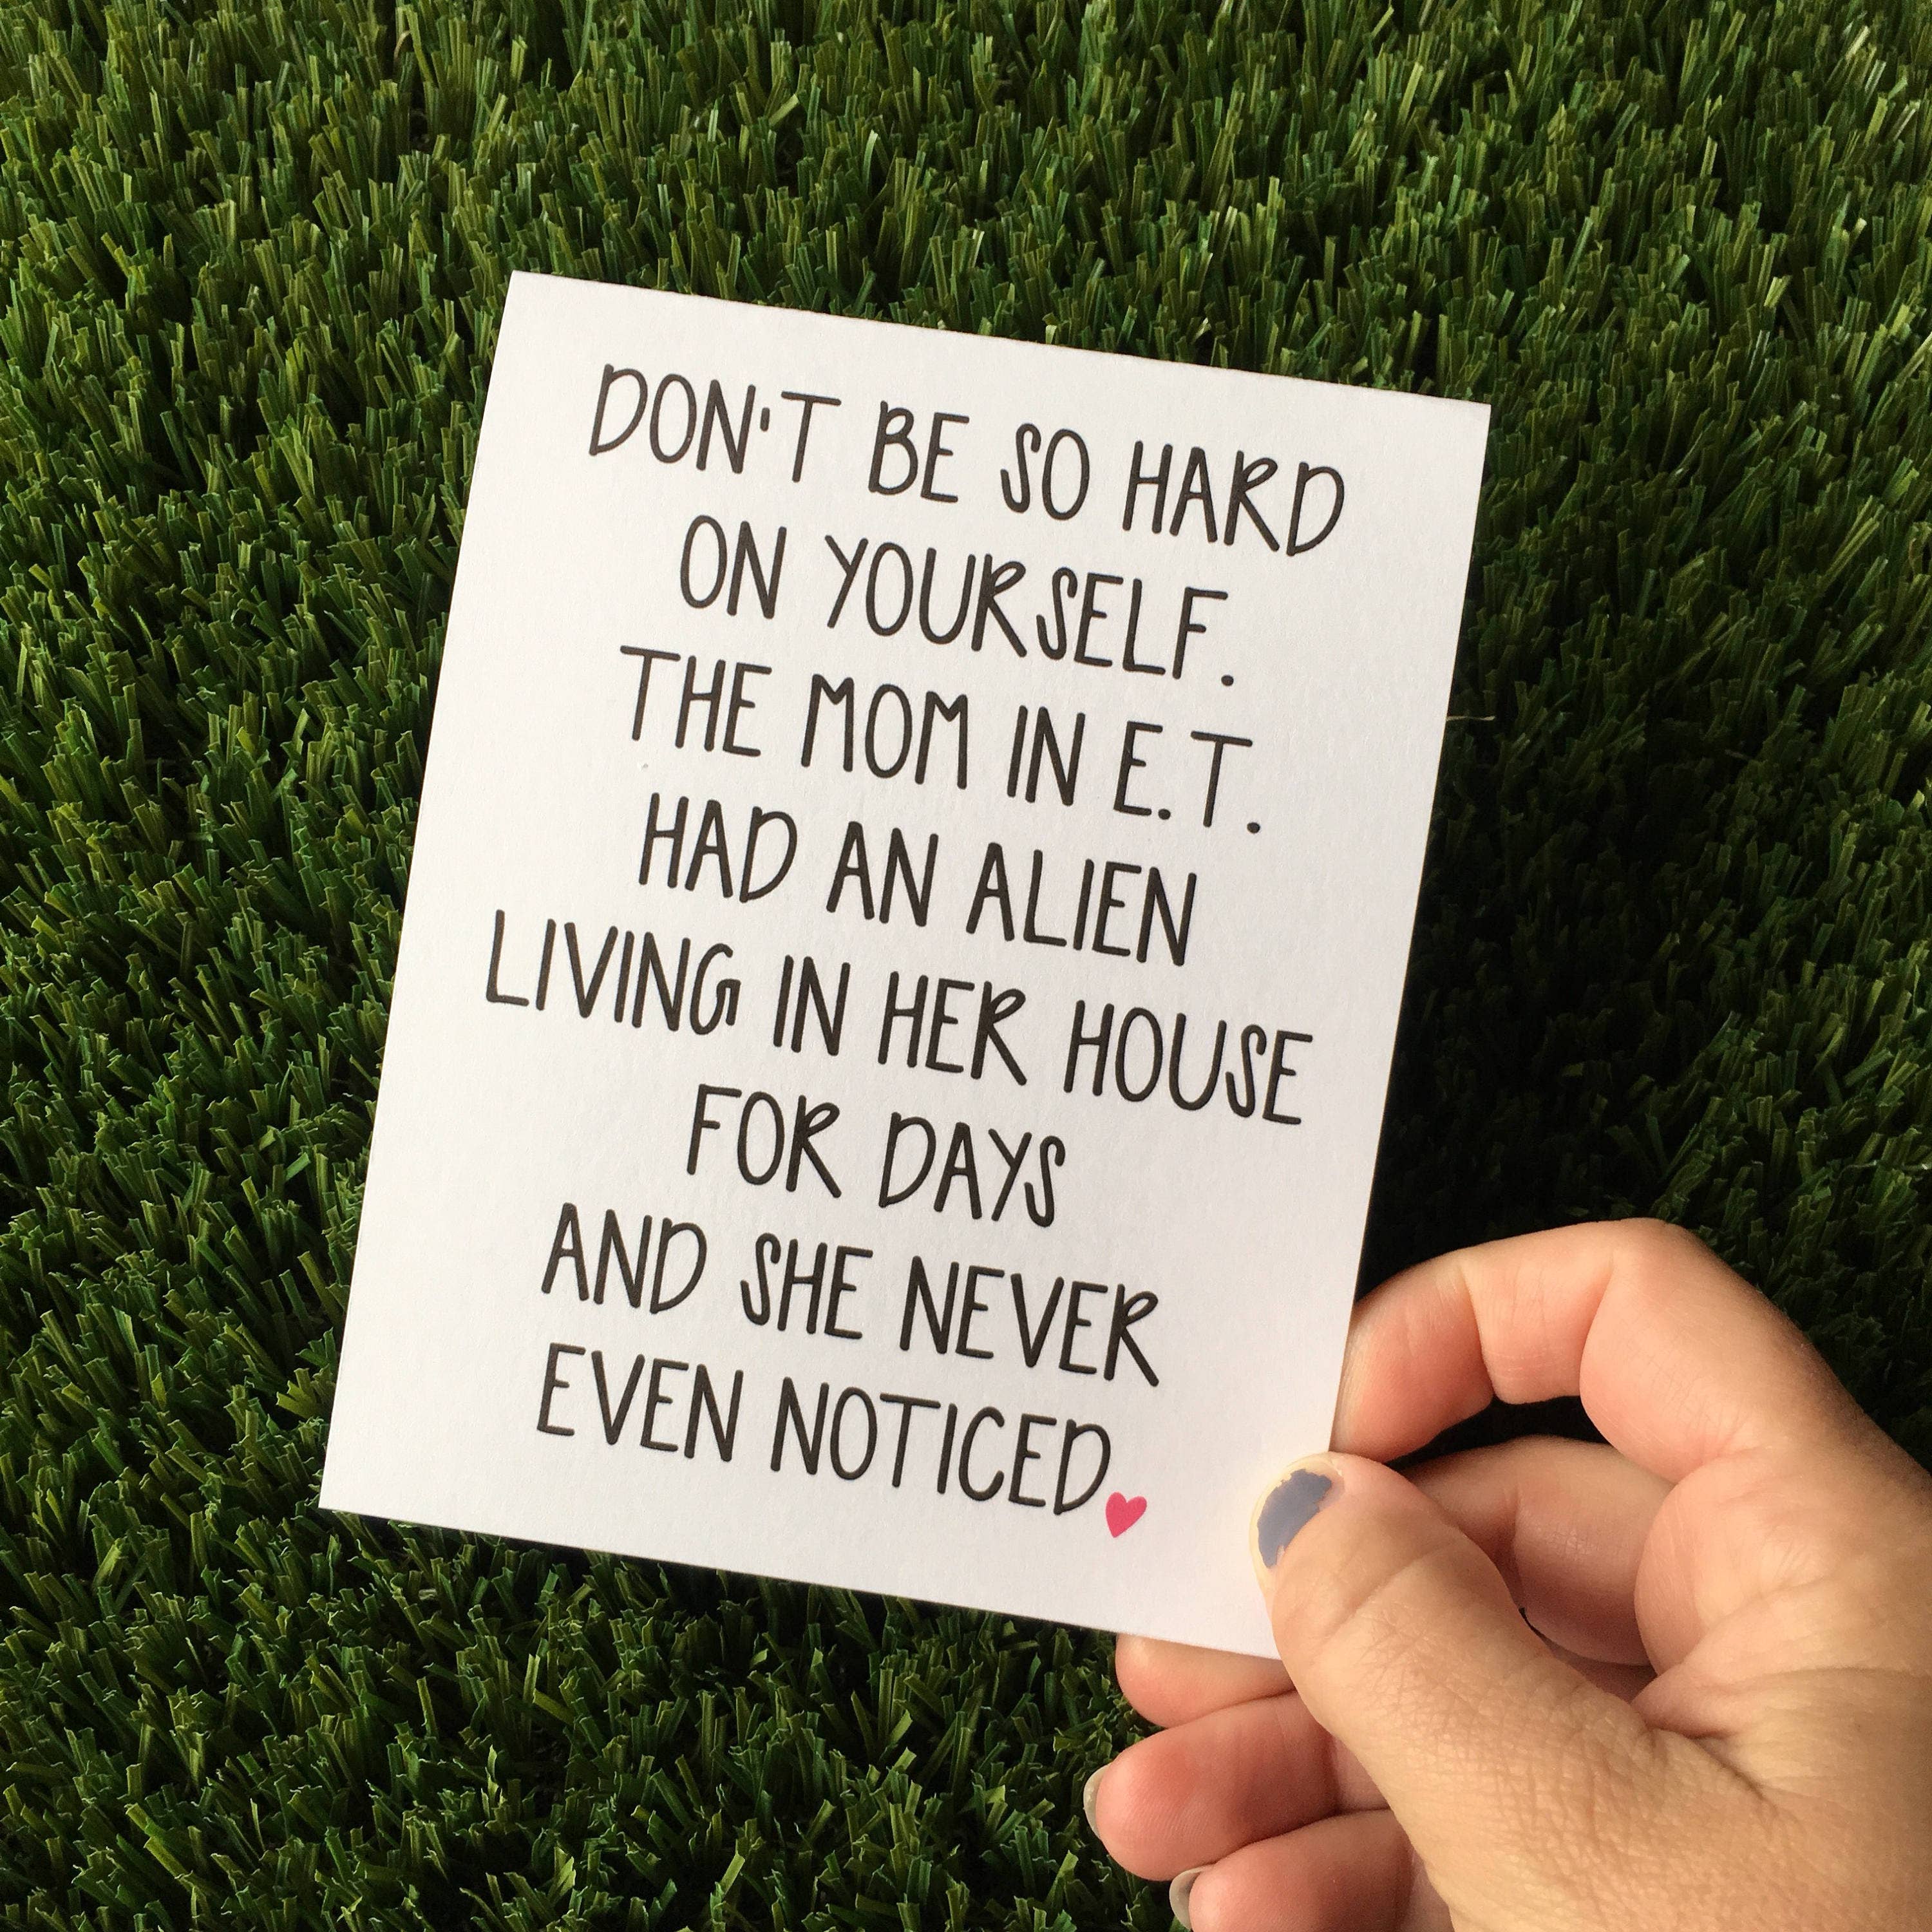 DON'T BE SO HARD
ON YOURSELF.
THE MOM IN E.T.
HAD AN ALIEN
LIVING IN HER HOUSE
FOR DAYS
AND SHE NEVER
EVEN NOTICED